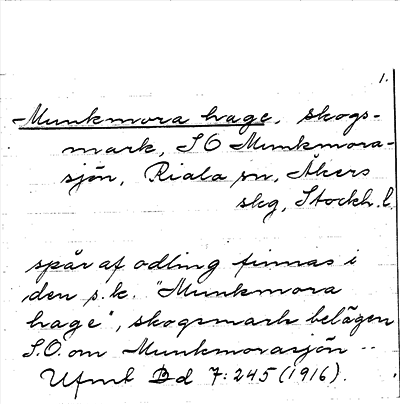 1.
Munkmora hage, skogs-
mark, SO Munkmora-
sjön, Riala sn, Åkers
skg, Stockh. l.
spår af odling finnas i
den s.k. "Munkmora
hage", skogsmark belägen
S.O. om Munkmorasjön ..
Ufml Dd 7:245 (1916).